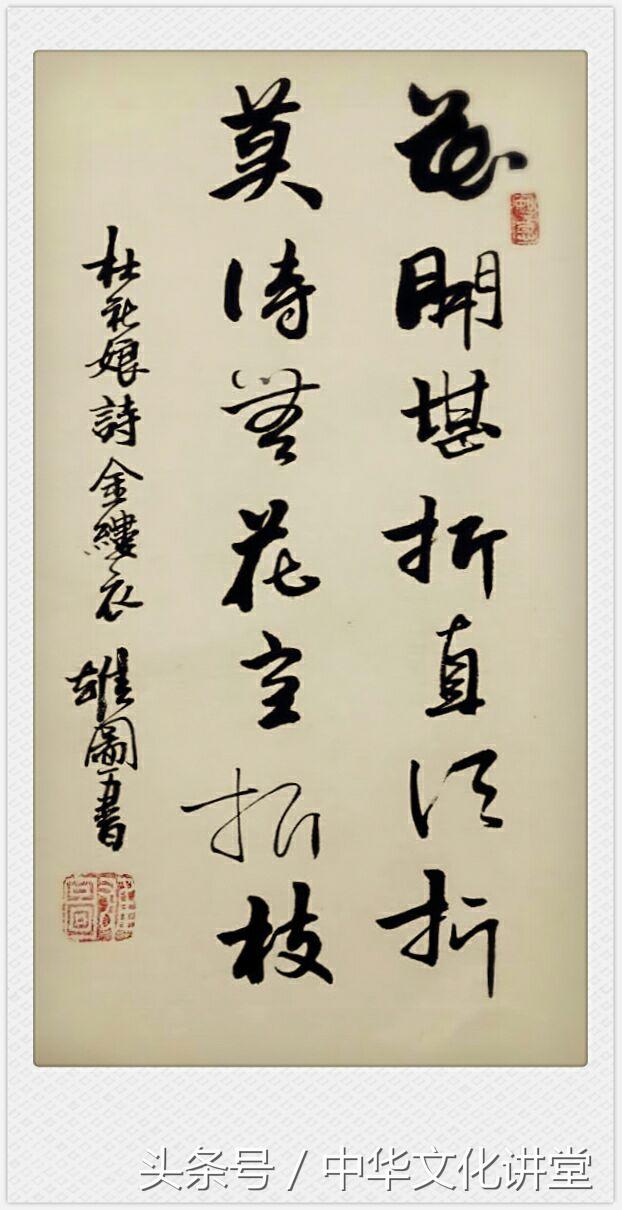 花開堪折直須折
莫待無花空折枝
杜秋娘詩金縷衣 雄圖書
头条号 / 中华文化讲堂